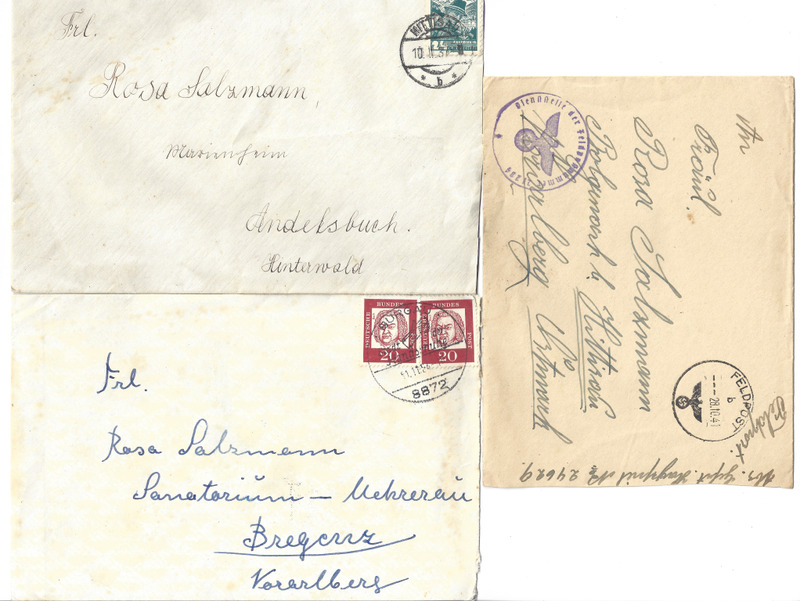 Frl.
Rosa Salzmann,
Marienheim
Andelsbuch.
Hinterwald
10. II. 37
b
DEUTSCHE BUNDESPOST
20
DEUTSCHE BUNDESPOST
20
8872
Frl.
Rosa Salzmann
Sanatorium – Mehrerau
Bregenz
Vorarlberg
An
Fräul.
Rosa Salzmann
Hittisau
Vorarlberg Ostmark
Dienststelle der Feldpostnummer
FELDPOST
b
28.10.41
Feldpost
24629